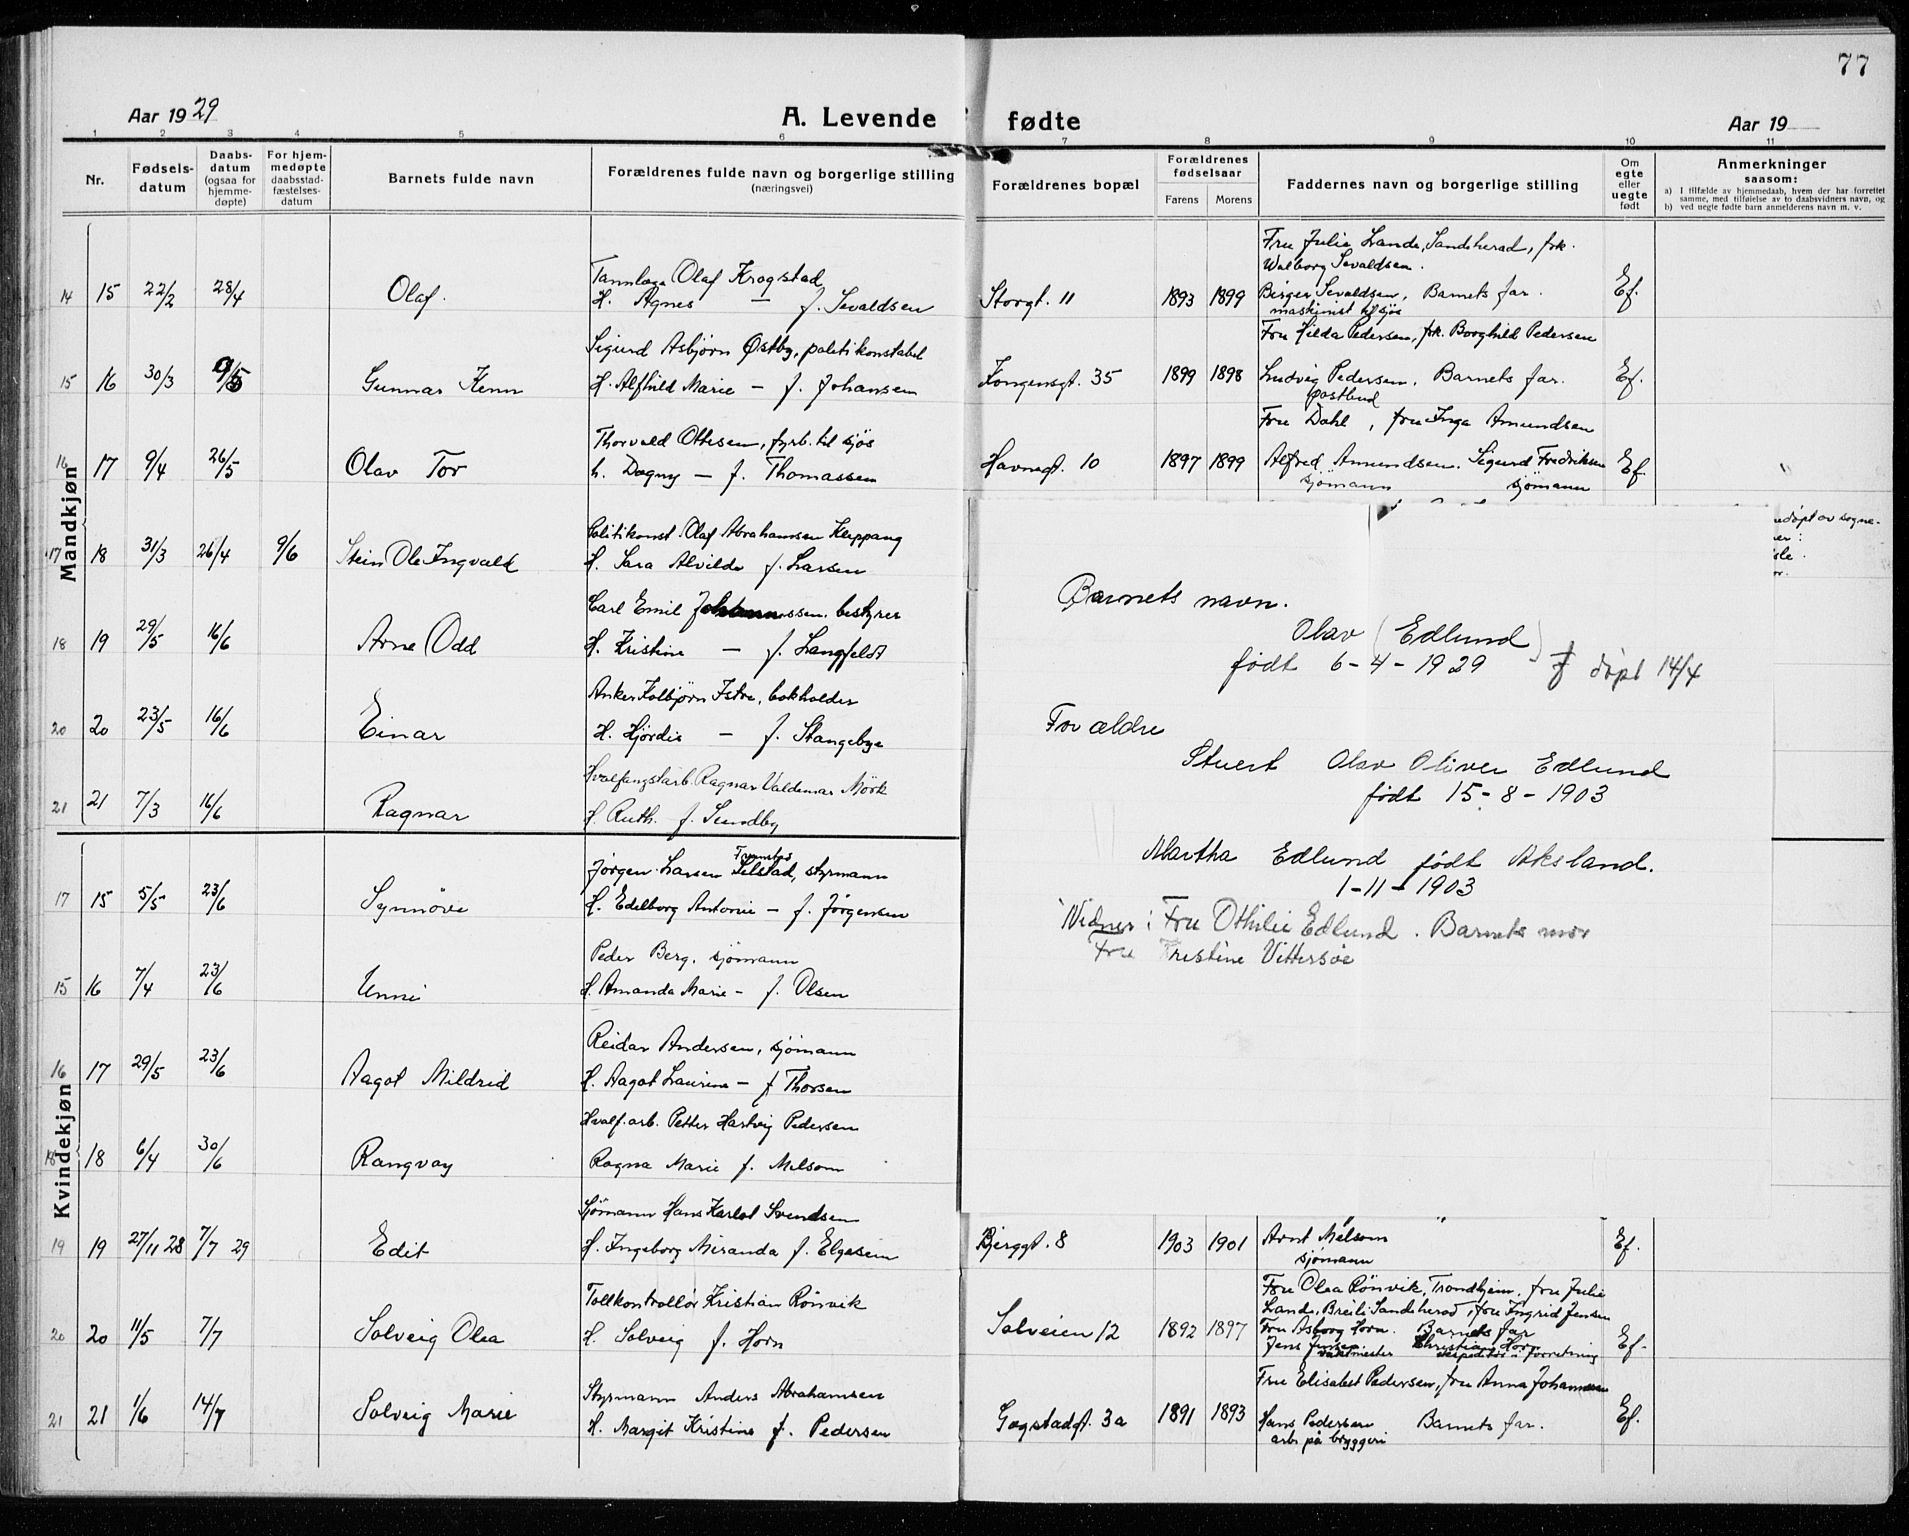 77
Aar 1929
A. Levende fødte
Aar 19
1 2 3 4 5 6 7 8 9 10 11
Nr.
Fødsels-
datum
Daabs-
datum
(ogsaa for
hjemme-
døpte)
For hjem-
medøpte
daabsstad-
fæstelses-
datum
Barnets fulde navn
Forældrenes fulde navn og borgerlige stilling
(næringsvei)
Forældrenes bopæl
Forældrenes
fødselsaar
Farens Morens
Faddernes navn og borgerlige stilling
Om
egte
eller
uegte
født
Anmerkninger
saasom:
a) I tilfælde av hjemmedaab, hvem der har forrettet
samme, med tilføielse av to daabsvidners navn, og
b) ved uegte fødte barn anmelderens navn m. v.
Mandkjøn
Fru Julie Lande, Sandeherad, frk.
Walborg Sevaldsen.
Tannlæge Olaf Krogstad
14 15 22/2 28/4 Olaf.
H. Agnes — f. Sevaldsen
Storgt. 11 1893 1899 Birger Sevaldsen, Barnets far. Ef.
maskinist til sjøs
Sigurd Asbjørn Østby, politikonstabel
Fru Hilda Pedersen, frk. Borghild Pedersen
15 16 30/3 9/5 Gunnar Kenn
H. Alfhild Marie — f. Johansen
Kongensgt. 35 1899 1898 Ludvig Pedersen. Barnets far. Ef.
postbud
Thorvald Ottesen, fyrb. til sjøs
Fru Dahl, fru Inga Amundsen
16 17 9/4 26/5 Olav Tor
h. Dagny — f. Thomassen
Havnegt. 10 1897 1899 Alfred Amundsen. Sigurd Fredriksen Ef.
sjømann sjømann
Politikonst. Olaf Abrahamsen Kleppang
17 18 31/3 26/4 9/6 Stein Ole Ingvald
H. Sara Alvilde f. Larsen
Carl Emil bestyrer
18 19 29/5 16/6 Arne Odd
H. Kristine — f. Langfeldt
Anker Kolbjørn Istre, bokholder
20 20 23/5 16/6 Einar
H. Hjørdis — f. Stangebye
Hvalfangstarb. Ragnar Valdemar Mörk
21 21 7/3 16/6 Ragnar
H. Ruth. f. Sundby
Barnets navn.
Olav (Edlund)
født 6-4-1929 døpt 14/4
Forældre
Stuert Olav Oliver Edlund
født 15-8-1903
Martha Edlund født Aksland.
1-11-1903
Vidner: Fru Othilie Edlund. Barnets mor
Fru Kristine Vittersøe
Kvindekjøn
Jørgen Larsen styrmann
17 15 5/5 23/6 Synnöve
H. Edelborg Antonie — f. Jörgensen
Peder Berg, sjömann
15 16 7/4 23/6 Unni
H. Amanda Marie — f. Olsen
Reidar Andersen, sjömann
16 17 29/5 23/6 Aagot Mildrid
H. Aagot Laurine — f Thorsen
Hvalf.arb. Petter Hartvig Pedersen
18 18 6/4 30/6 Rangvay
Ragna Marie f. Melsom
Sjömann Hans Karlot Svendsen
19 19 27/11 28 7/7 29 Edit
H. Ingeborg Miranda f. Elgesem
Bjerggt. 8 1903 1901 Arnt Melsom Ef.
sjömann
Tollkontrollör Kristian Rönvik
Fru Olea Rönvik, Trondhjem, fru Julie
Lande, Breili Sandeherad, fru Ingrid Jensen
Fru Asborg Horn. Barnets far
20 20 11/5 7/7 Solveig Olea
H. Solveig f. Horn
Solveien 12 1892 1897 Jens Jensen Christian Horn Ef.
vaktmester ekspeditör i forretning
Styrmann Anders Abrahamsen
Fru Elisabet Pedersen, fru Anna Johannesen
21 21 1/6 14/7 Solveig Marie
H. Margit Kristine f. Pedersen
Gogstadgt. 3a 1891 1893 Hans Pedersen Barnets far. Ef.
arb. på bryggeri